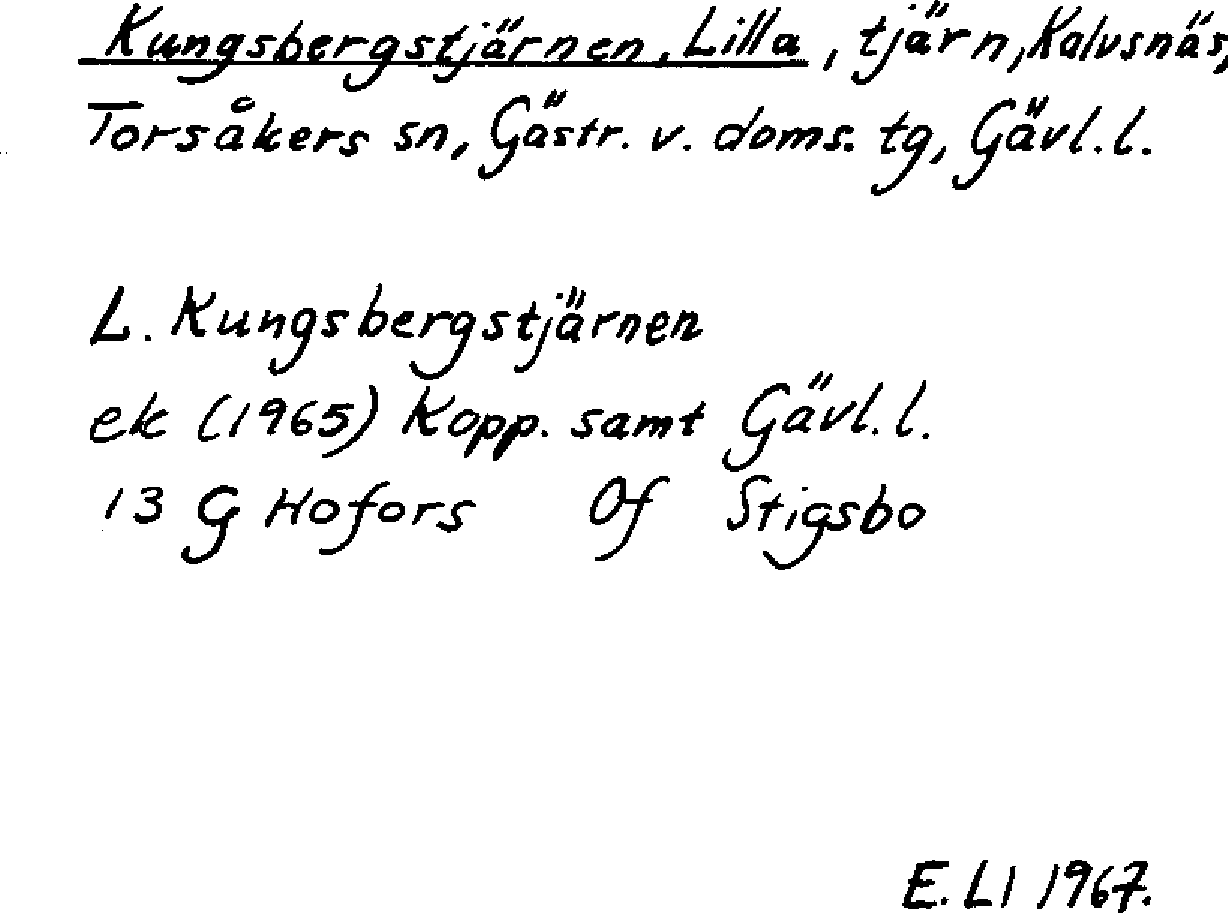 Kungsbergstjärnen, Lilla, tjärn, Kalvsnäs,
Torsåkers sn, Gästr. v. doms. tg, Gävl. l.
L. Kungsbergstjärnen
ek (1965) Kopp. samt Gävl. l.
13 G Hofors 0f Stigsbo
E. Ll 1967.